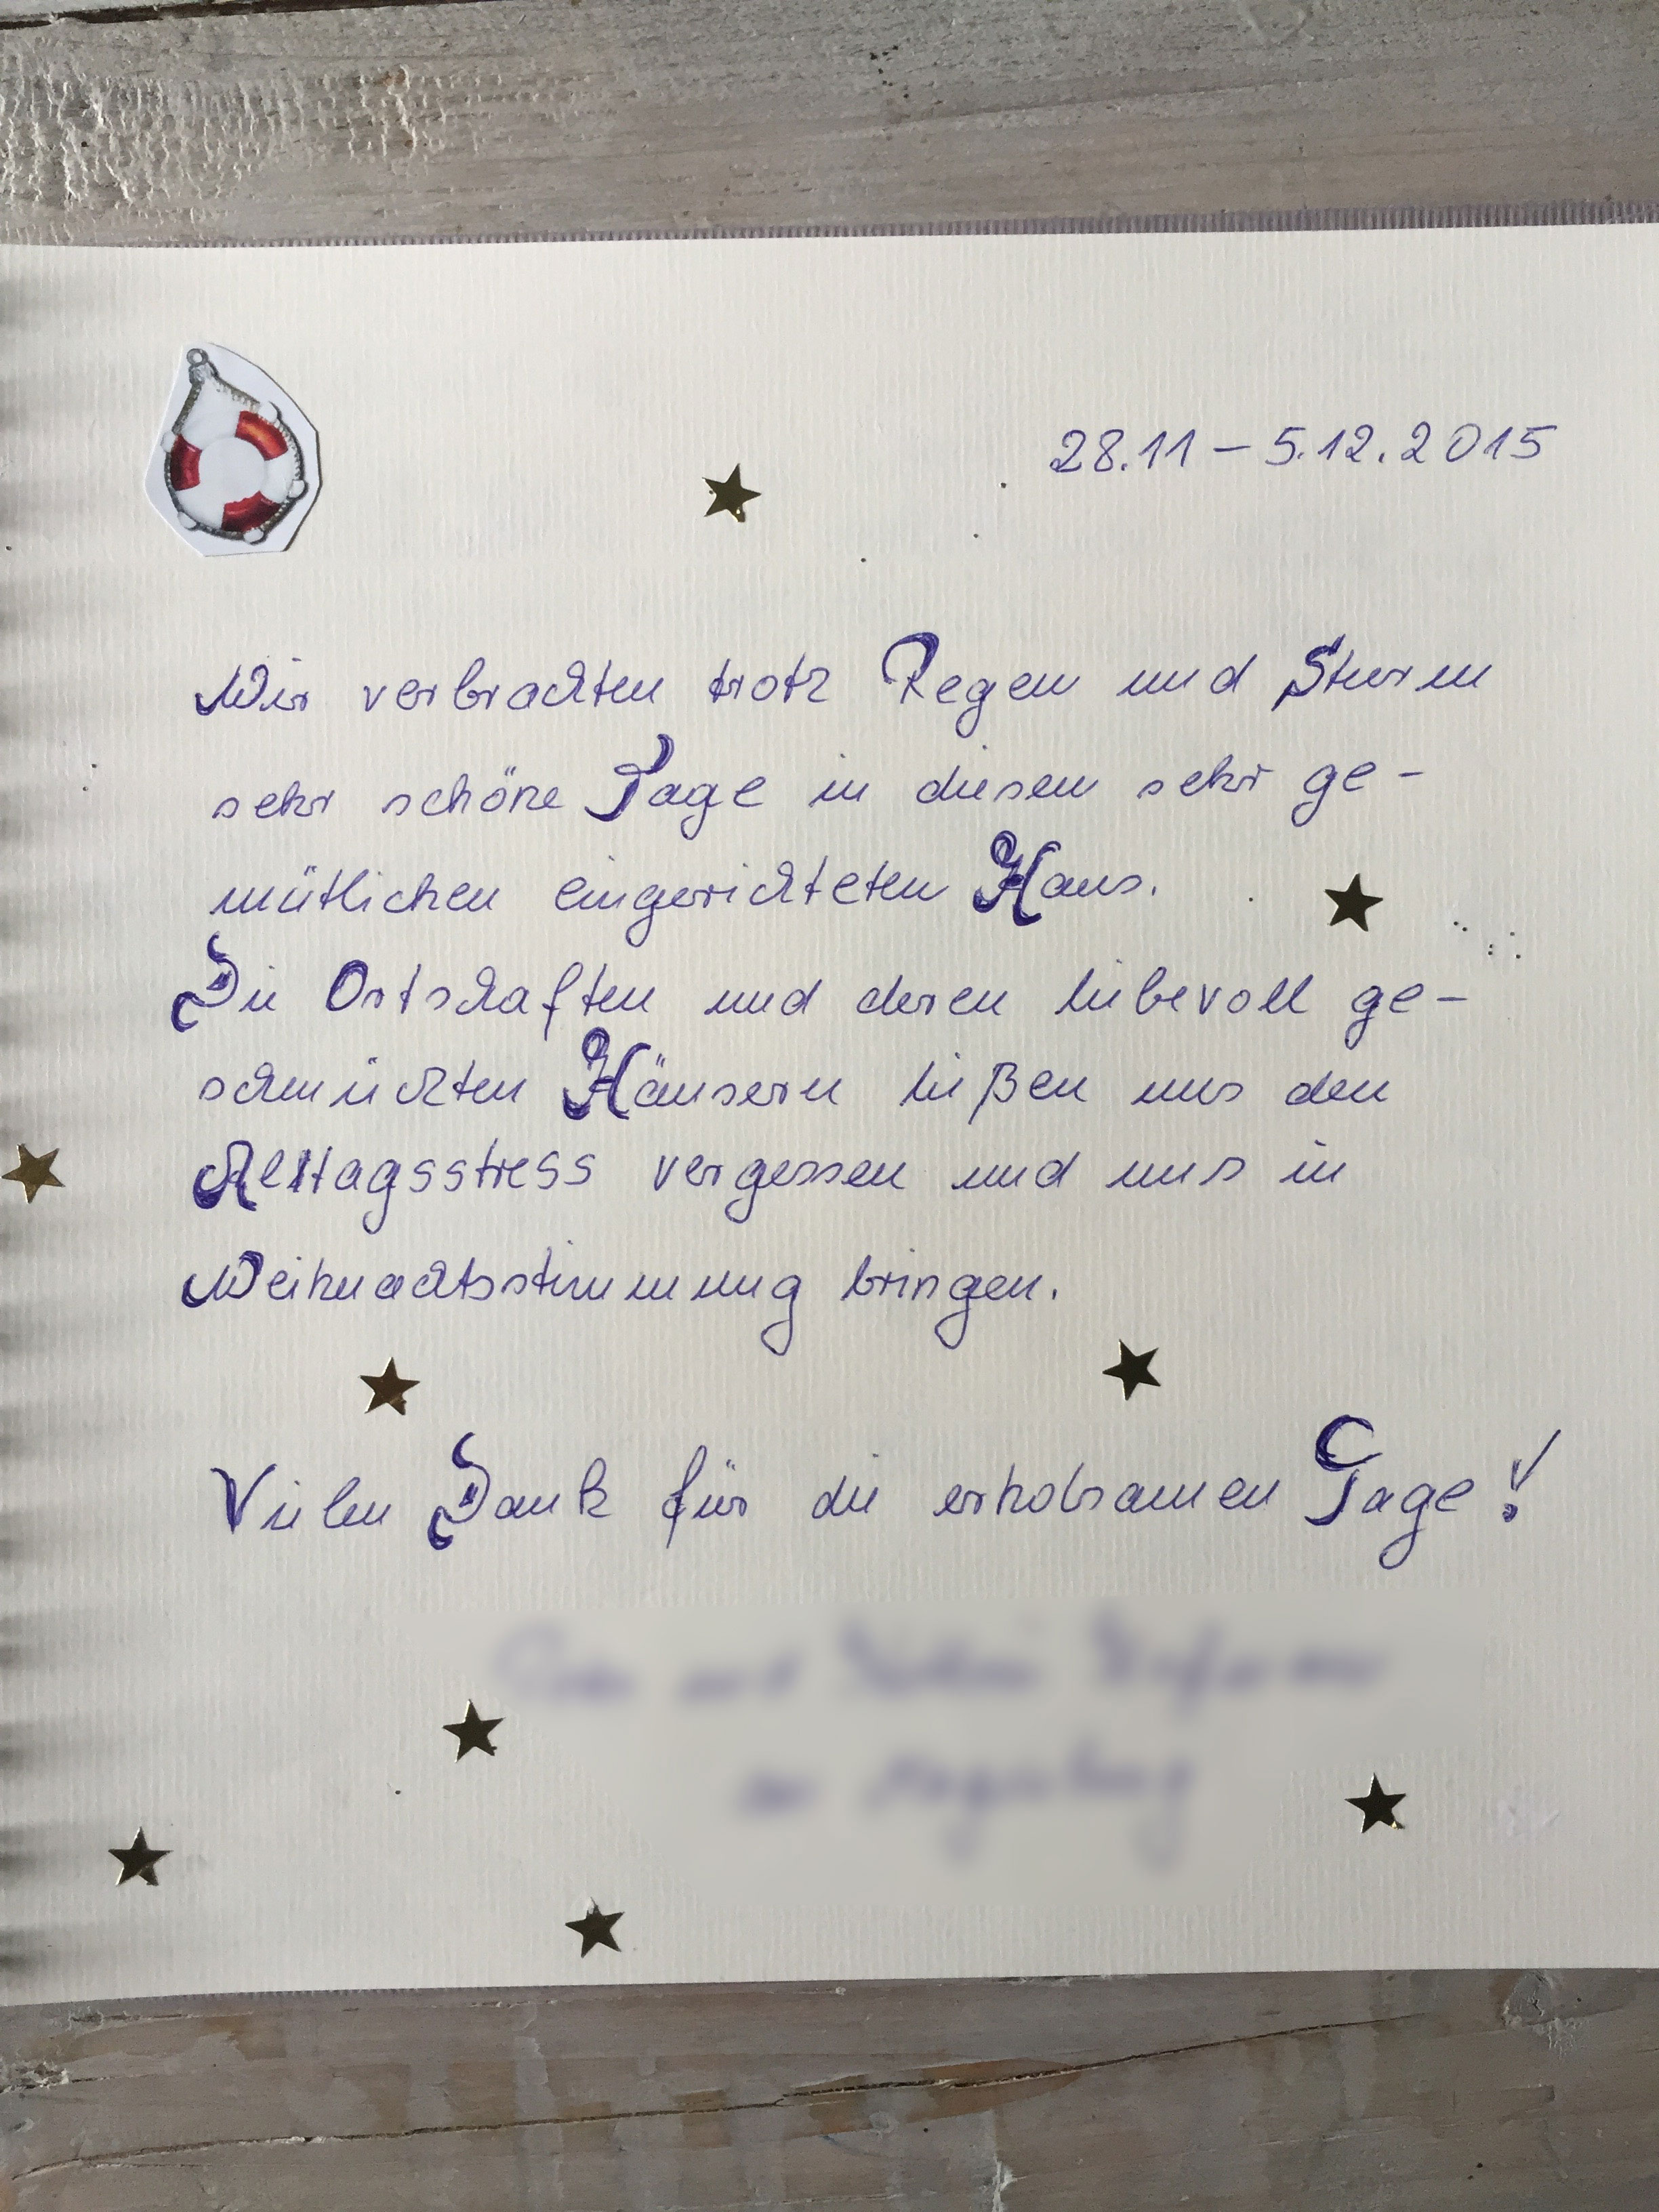 28.11 – 5.12.2015
Wir verbrachten trotz Regen und Sturm
sehr schöne Tage in diesem sehr ge-
mütlichen eingerichteten Haus.
Die Ortschaften und deren liebevoll ge-
schmückten Häusern ließen uns den
Alltagsstress vergessen und uns in
Weihnachtsstimmung bringen.
Vielen Dank für die erholsamen Tage!